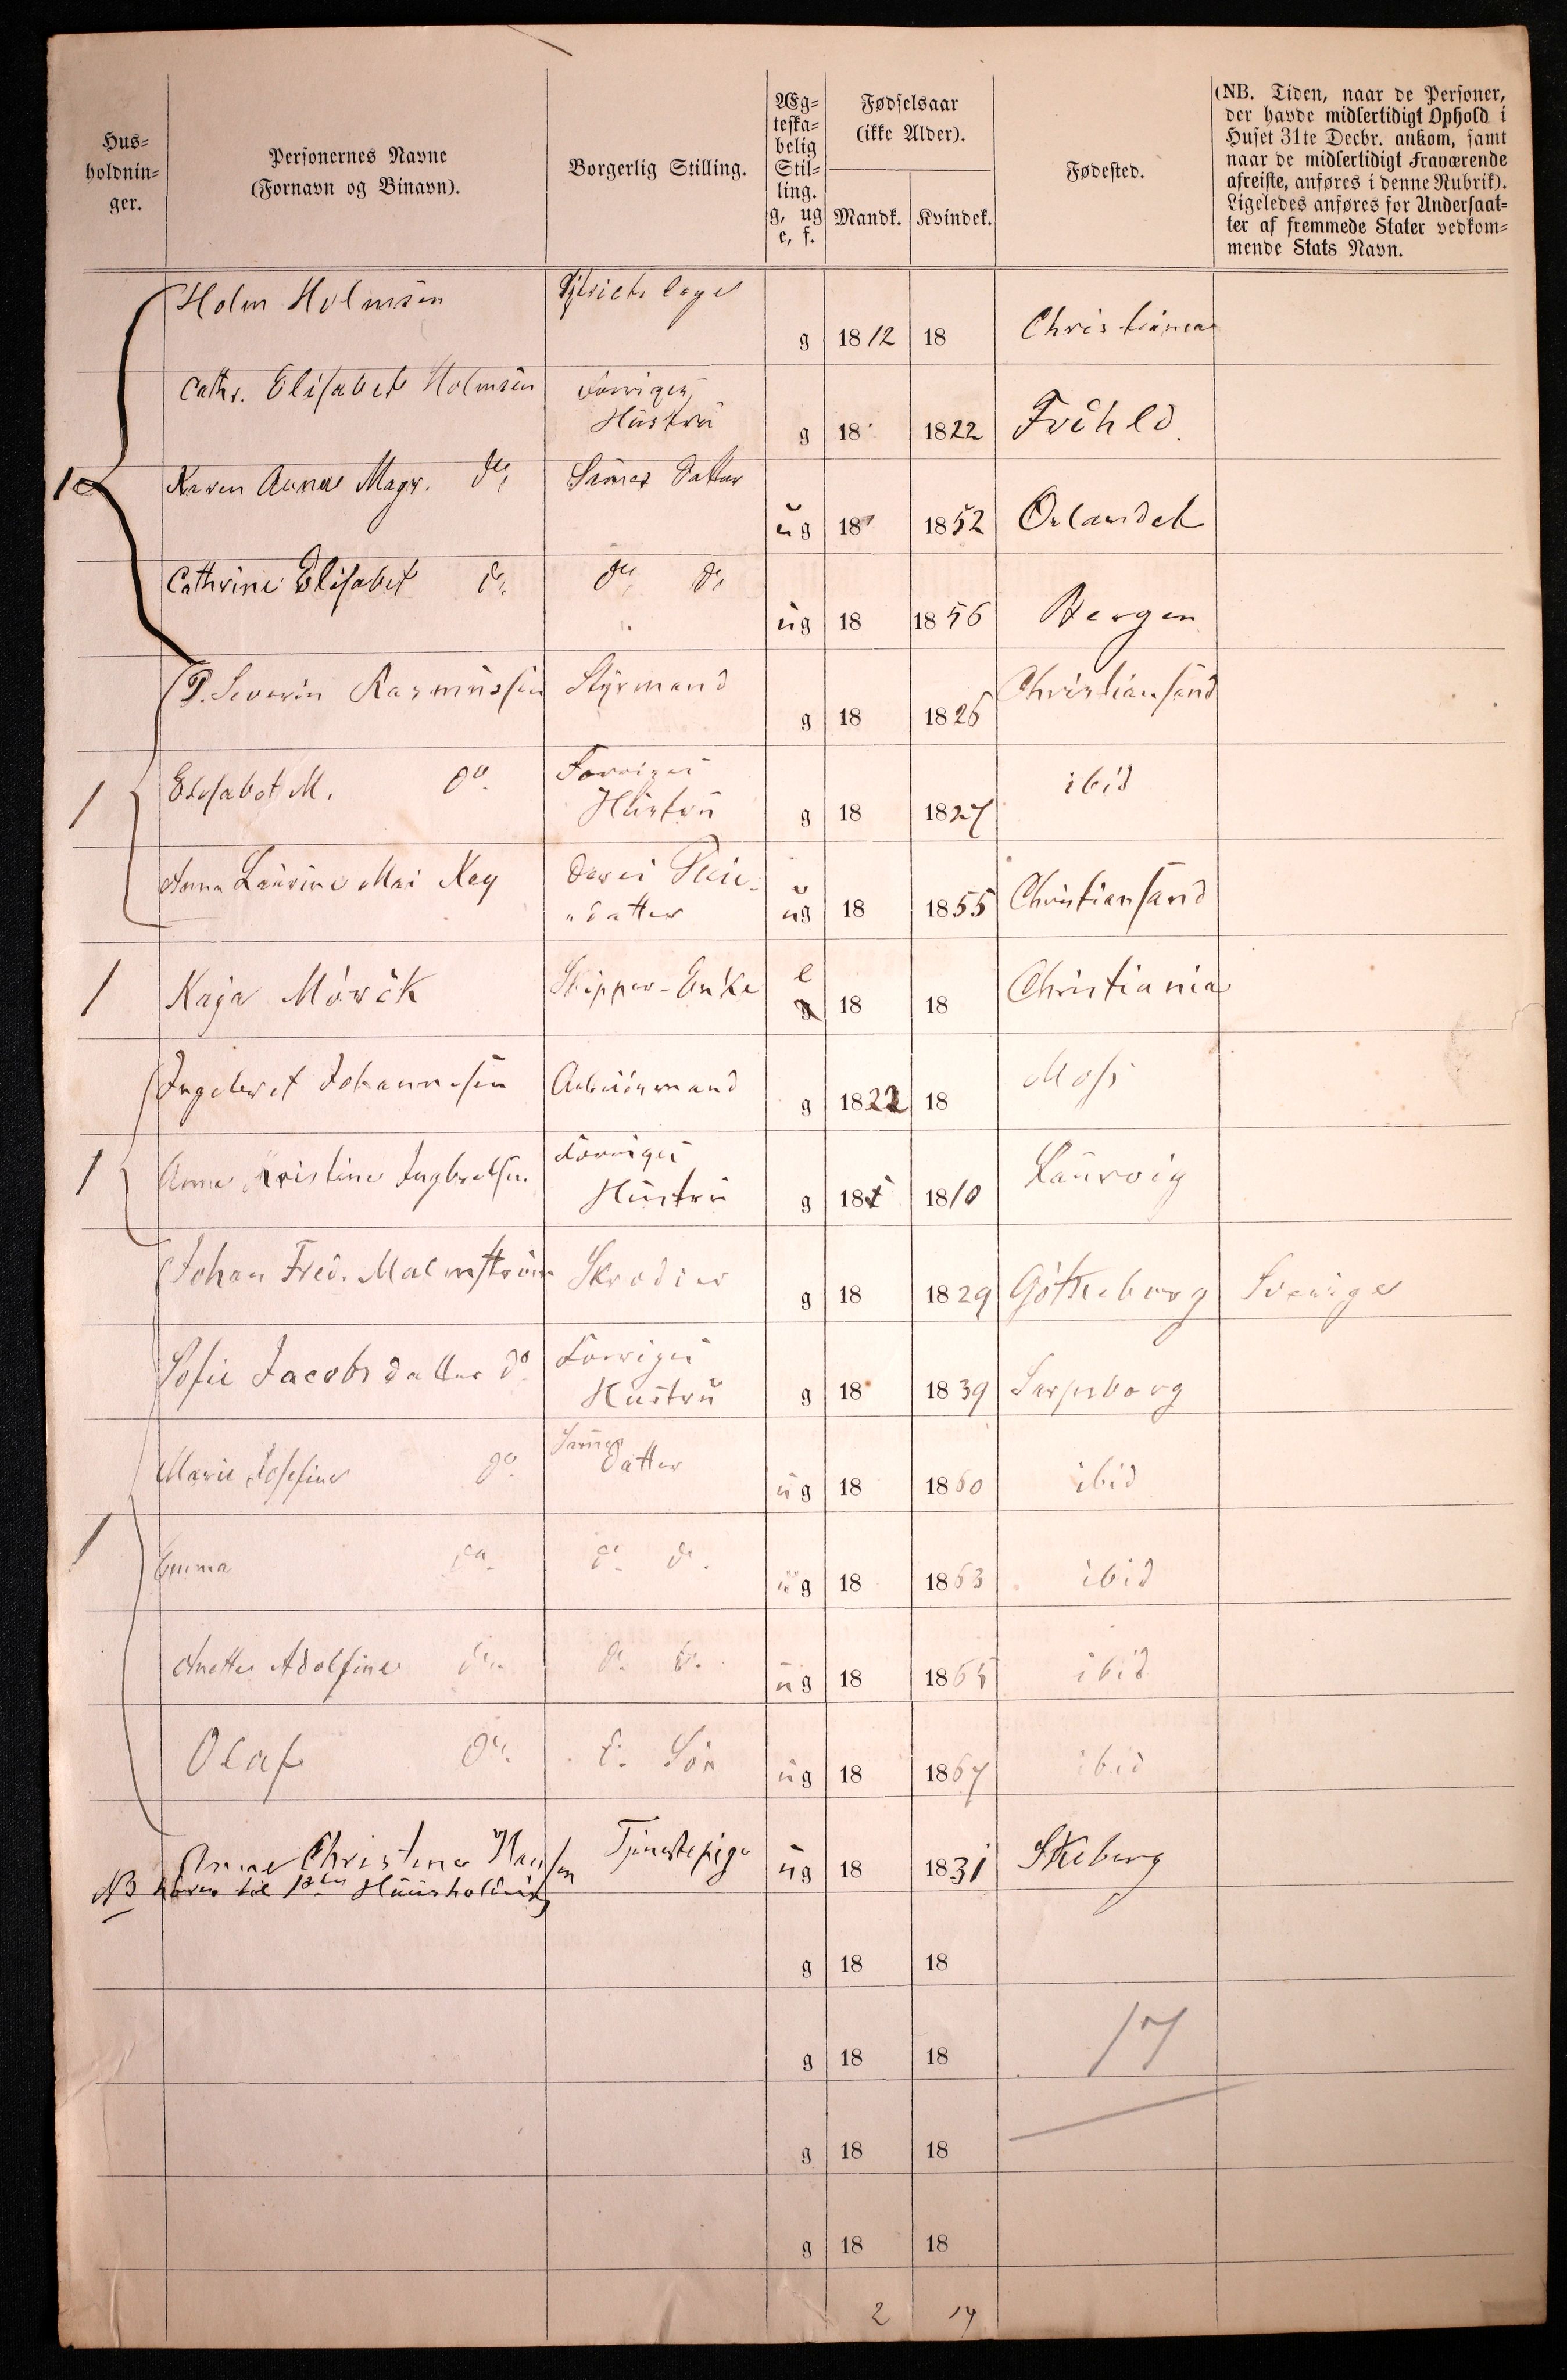 Hus-
holdnin-
ger.
Personernes Navne
(Fornavn og Binavn).
Borgerlig Stilling.
Æg-
teska-
belig
Stil-
ling.
g, ug
e, f.
Fødselsaar
(ikke Alder).
Mandk. Kvindek.
Fødested.
(NB. Tiden, naar de Personer,
der havde midlertidigt Ophold i
Huset 31te Decbr. ankom, samt
naar de midlertidigt Fraværende
afreiste, anføres i denne Rubrik).
Ligeledes anføres for Undersaat-
ter af fremmede Stater vedkom-
mende Stats Navn.
Holm Holmsen g 1812 18 Christiania
Cathr. Elisabet Holmsen Forriges Hustru g 18 1822 
1 Karen Anna Magr. do Sammes Datter ug 18 1852 Ørlandet
Cathrine Elisabet do do do ug 18 1856 Bergen
P. Severin Rasmussen Styrmand g 18 1826 Christiansand
1 Elisabet M. do Forriges Hustru g 18 1827 ibid
Anna Laurine Mai Kay Deres Pleie-datter ug 18 1855 Christiansand
1 Kaja Mörck Skipper-Enke e g 18 18 Christiania
Ingebret Johannesen Arbeidsmand g 1822 18 Moss
1 Anne Kristine Ingbretsen Forriges Hustru g 18 1810 Laurvig
Johan Fred. Malmström Skrædder g 18 1829 Götheborg Sverige
Sofie Jacobsdatter do Forriges Hustru g 18 1839 Sarpsborg
Marie Josefine do Sammes Datter ug 18 1860 ibid
1 Emma do do do ug 18 1863 ibid
Anette Adolfine do do do ug 18 1865 ibid
Olaf do do Sön ug 18 1867 ibid
Anne Christine Hansen Tjenestepige ug 18 1831 Skeberg
NB hører til 1ste Huusholdning
g 18 18
g 18 18 17
g 18 18
g 18 18
2 14